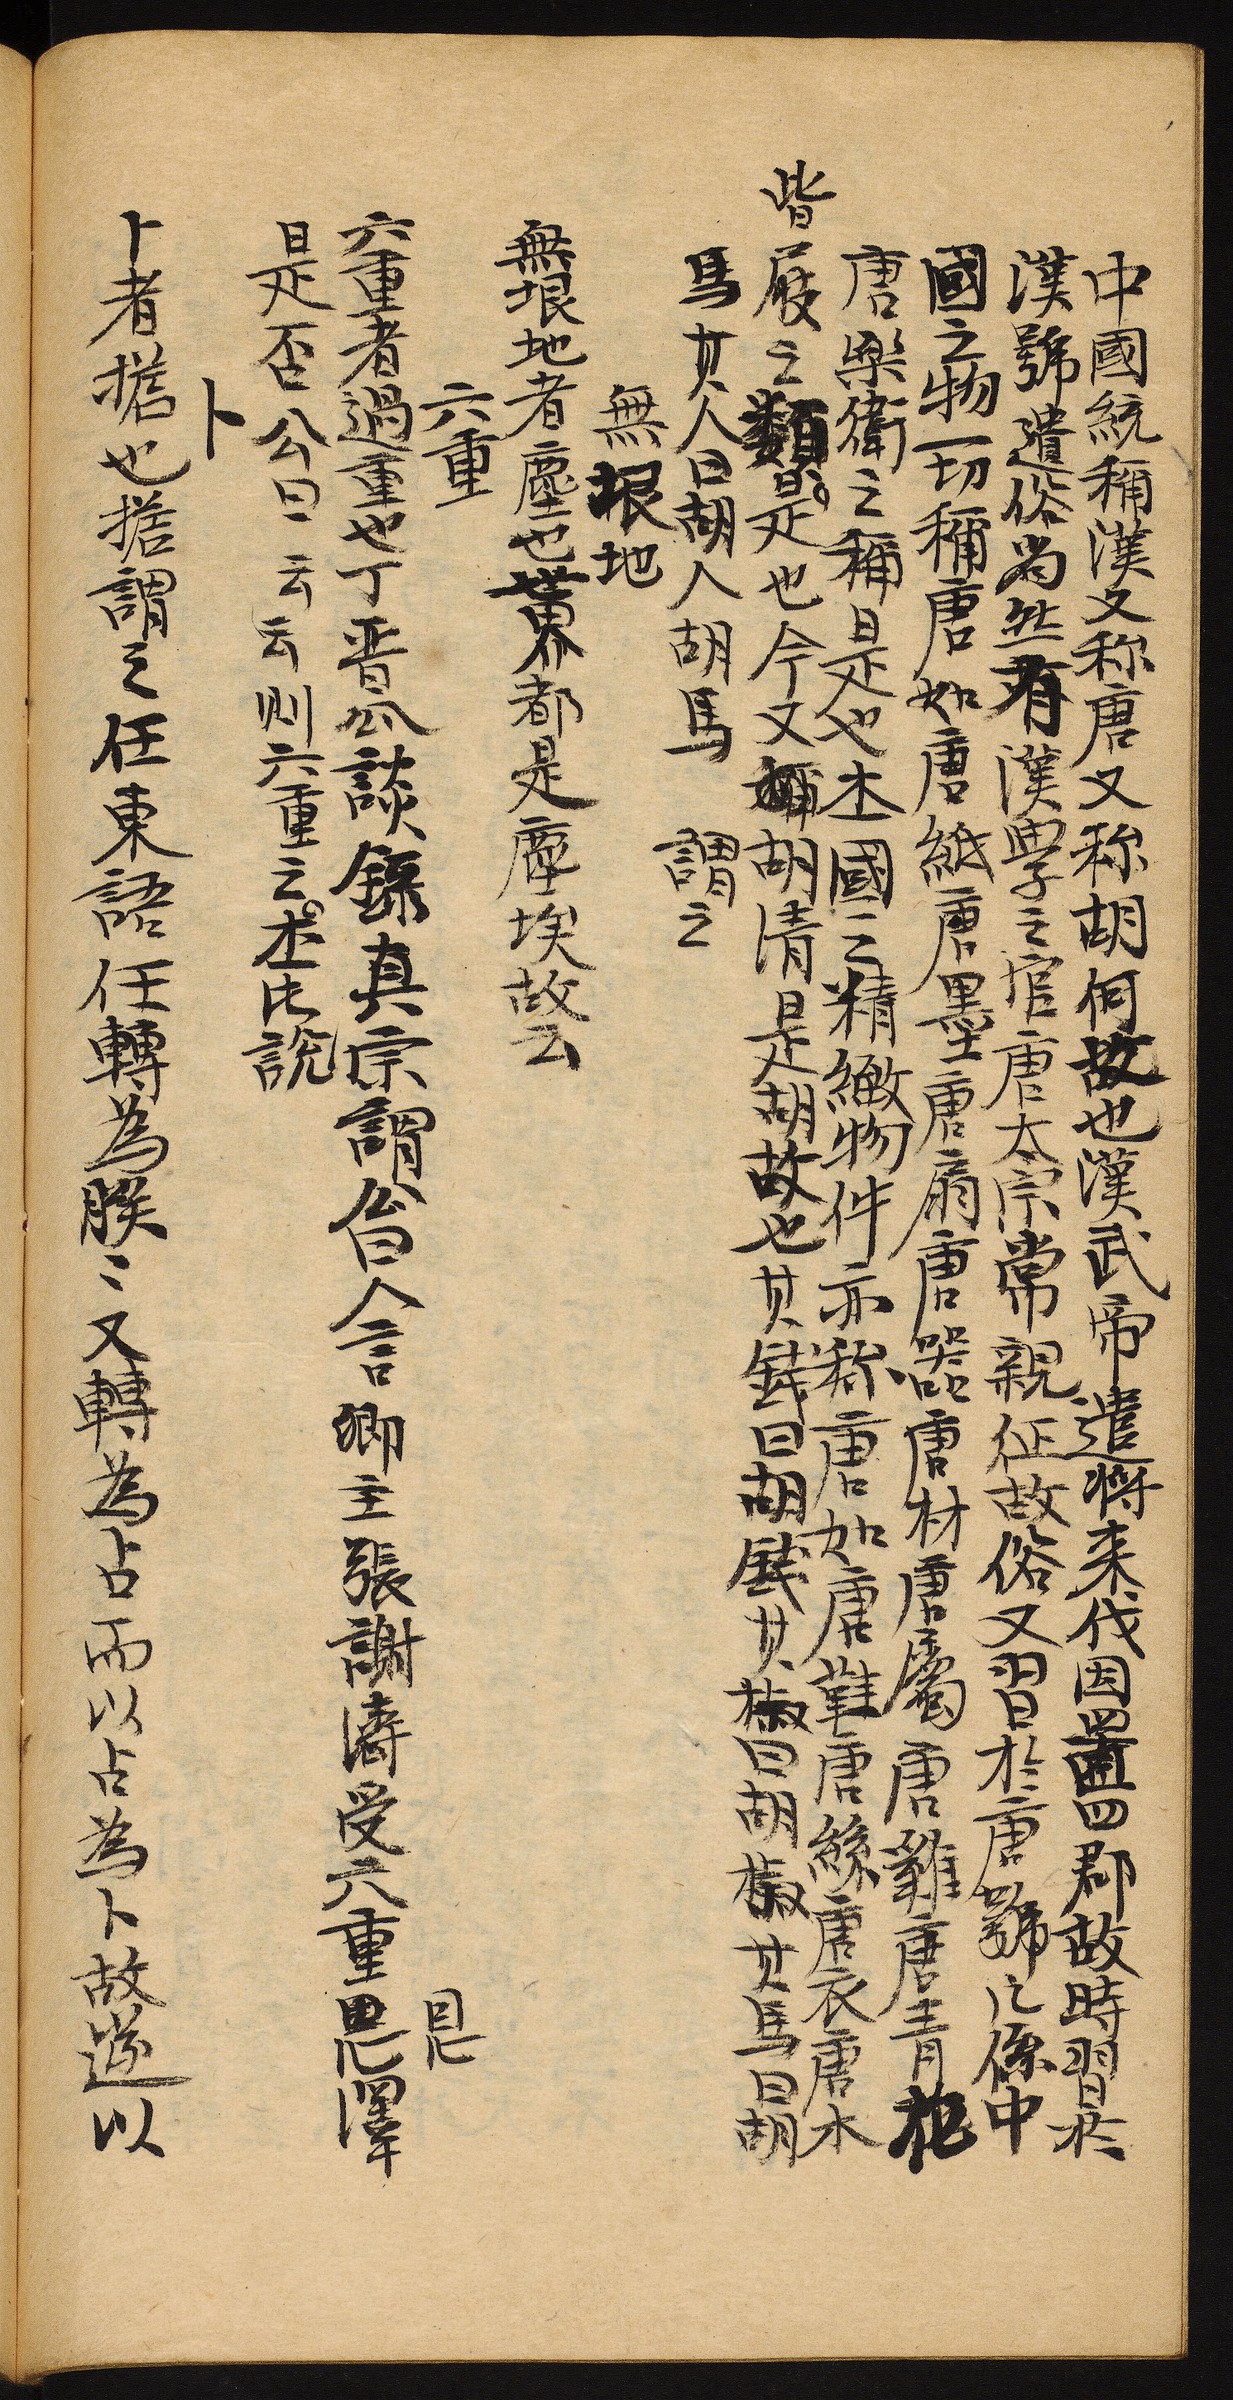 中國統稱漢又称唐又称胡何故也漢武帝遣将来伐因置四郡故時習於
漢號遺俗尚然有漢學之官唐太宗常親征故俗又習於唐號凡係中
國之物一切稱唐如唐紙唐墨唐扇唐器唐材唐屬唐雞唐青花
唐樂衛之稱是也本國之精緻物件亦称唐如唐鞋唐絲唐衣唐木
皆屐之類是也今又稱胡清是胡故也其錢曰胡錢其椒曰胡椒其馬曰胡
馬其人曰胡人胡馬 謂之
無垠地
無垠地者塵也世界都是塵埃故云
六重
六重者過重也丁晋公談錄真宗謂曰人言卿主張謝濤受六重恩澤
恩
是否公曰云云則六重之本此說
卜
卜者擔也擔謂之任東語任轉為朕朕又轉為占而以占為卜故遂以